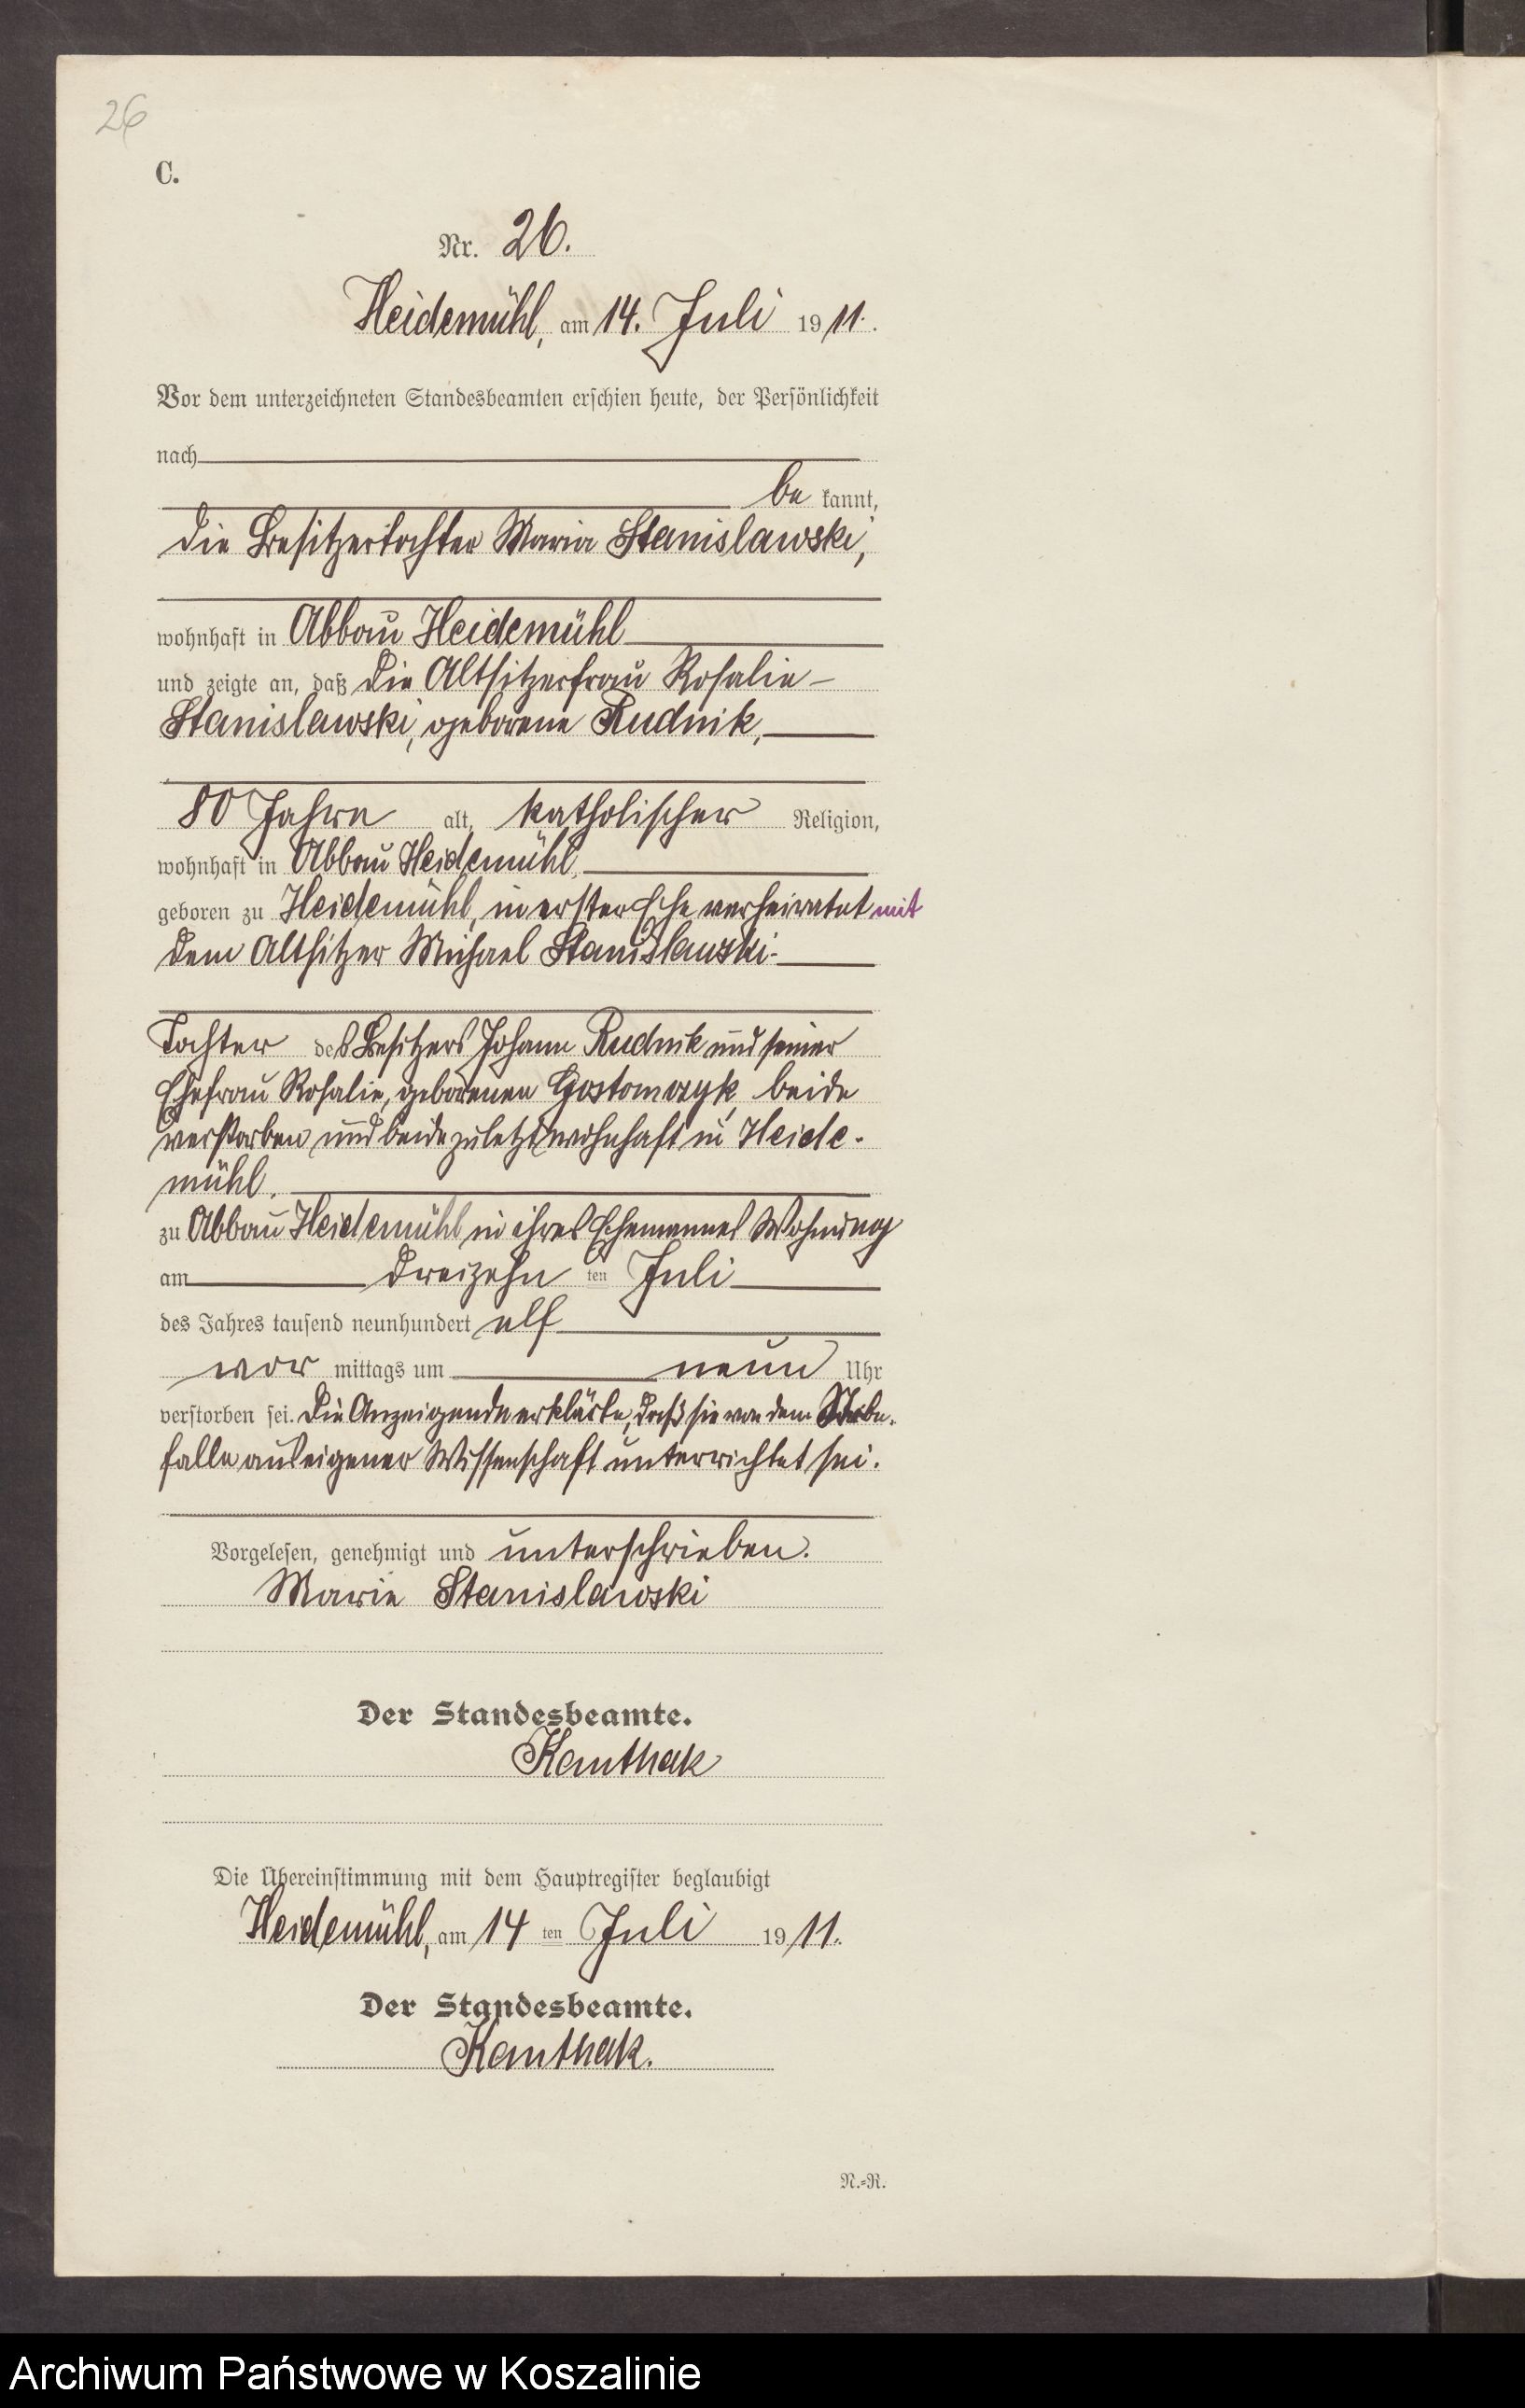 26
C.
Nr. 26.
Heidemühl, am 14. Juli 1911.
Vor dem unterzeichneten Standesbeamten erschien heute, der Persönlichkeit
nach
be kannt,
die Besitzertochter Maria Stanislawski,
wohnhaft in Abbau Heidemühl
und zeigte an, daß die Altsitzerfrau Rosalie
Stanislawski, geborene Rudnik,
80 Jahre alt, katholischer Religion,
wohnhaft in Abbau Heidemühl,
geboren zu Heidemühl, in erster Ehe verheiratet mit
dem Altsitzer Michael Stanislawski.
Tochter des Besitzers Johann Rudnik und seiner
Ehefrau Rosalie, geborenen Gostomczyk, beide
verstorben und beide zuletzt wohnhaft in Heide-
mühl,
zu Abbau Heidemühl in ihres Ehemannes Wohnung
am dreizehn ten Juli
des Jahres tausend neunhundert elf
vor mittags um neun Uhr
verstorben sei. Die Anzeigende erklärte, daß sie von dem Sterbe-
falle aus eigener Wissenschaft unterrichtet sei.
Vorgelesen, genehmigt und unterschrieben.
Marie Stanislawski
Der Standesbeamte.
Kanthak
Die Übereinstimmung mit dem Hauptregister beglaubigt
Heidemühl, am 14 ten Juli 1911.
Der Standesbeamte.
Kanthak.
N.-R.
Archiwum Państwowe w Koszalinie